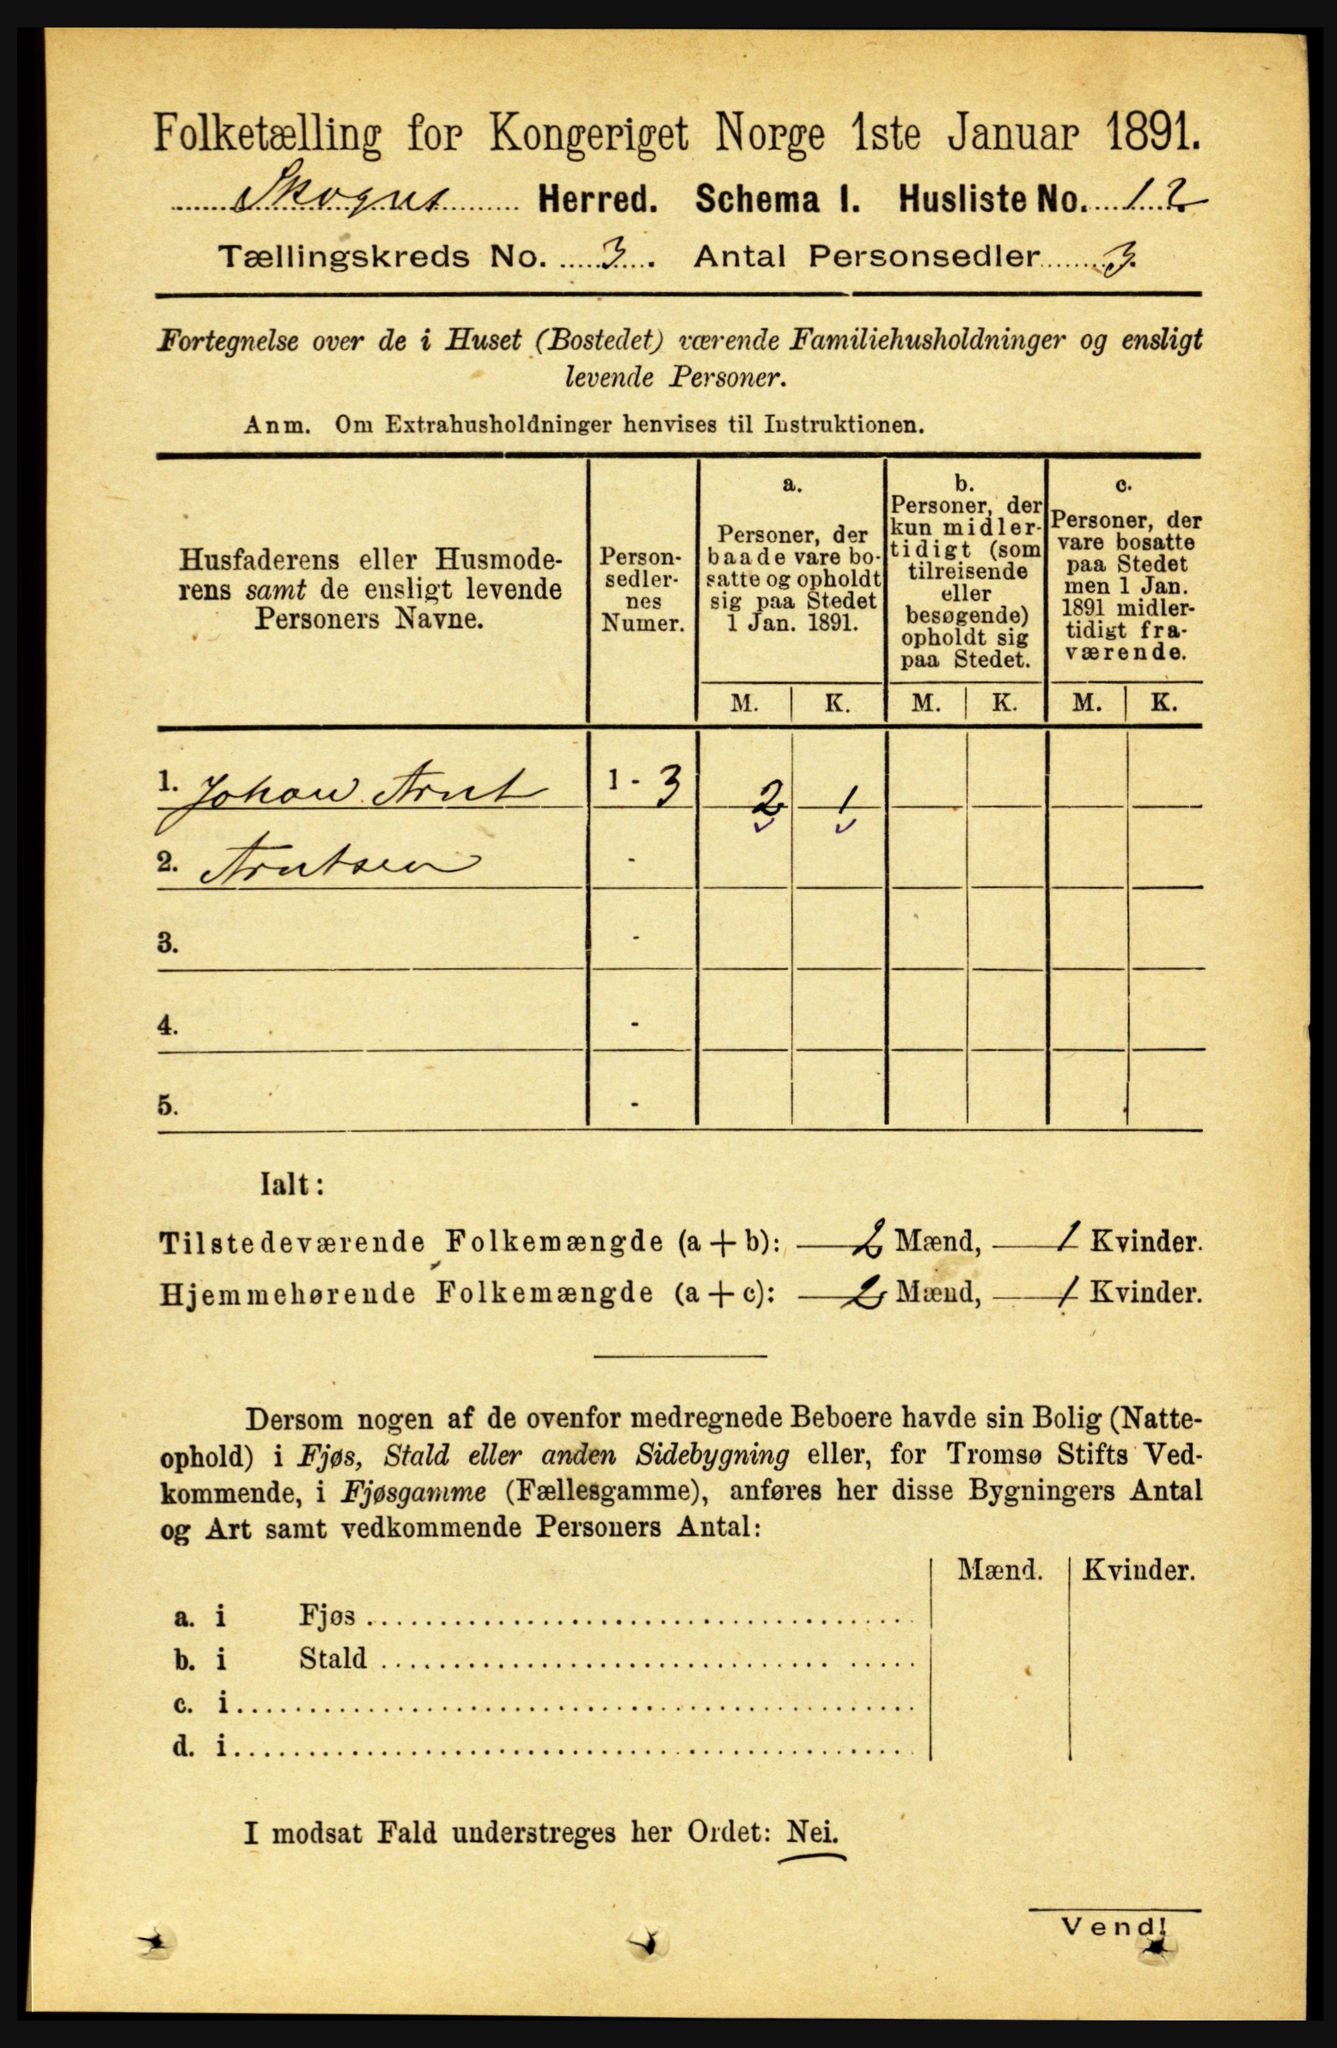 Folketælling for Kongeriget Norge 1ste Januar 1891.
Skogns Herred. Schema I. Husliste No. 12
Tællingskreds No. 3. Antal Personsedler 3.
Fortegnelse over de i Huset (Bostedet) værende Familiehusholdninger og ensligt
levende Personer.
Anm. Om Extrahusholdninger henvises til Instruktionen.
Husfaderens eller Husmode-
rens samt de ensligt levende
Personers Navne.
Person-
sedler-
nes
Numer.
a.
Personer, der
baade vare bo-
satte og opholdt
sig paa Stedet
1 Jan. 1891.
b.
Personer, der
kun midler-
tidigt (som
tilreisende
eller
besøgende)
opholdt sig
paa Stedet.
c.
Personer, der
vare bosatte
paa Stedet
men 1 Jan.
1891 midler-
tidigt fra-
værende.
M. K. M. K. M. K.
1. Johan Arnt 1 - 3 2 1
2. Arntsen -
3. -
4. -
5. -
Ialt:
Tilstedeværende Folkemængde (a + b): 2 Mænd, 1 Kvinder.
Hjemmehørende Folkemængde (a + c): 2 Mænd, 1 Kvinder.
Dersom nogen af de ovenfor medregnede Beboere havde sin Bolig (Natte-
ophold) i Fjøs, Stald eller anden Sidebygning eller, for Tromsø Stifts Ved-
kommende, i Fjøsgamme (Fællesgamme), anføres her disse Bygningers Antal
og Art samt vedkommende Personers Antal:
Mænd. Kvinder.
a. i Fjøs
b. i Stald
c. i
d. i
I modsat Fald understreges her Ordet: Nei.
Vend!